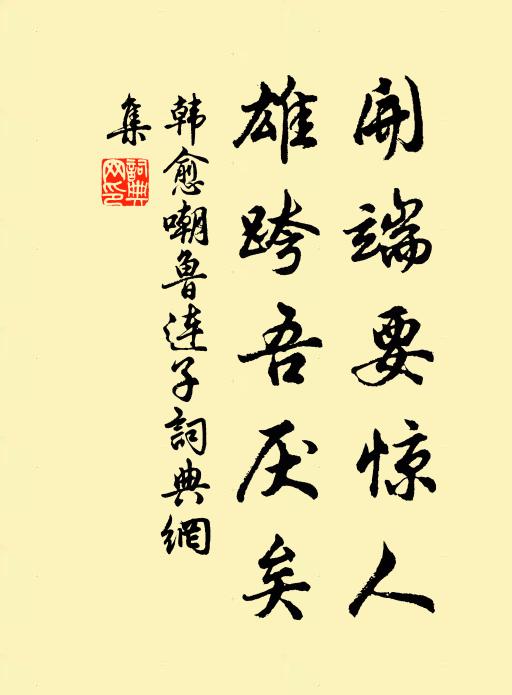 开端要惊人
雄跨吾厌矣
韩愈嘲鲁连子詞典網
集
詞典网印